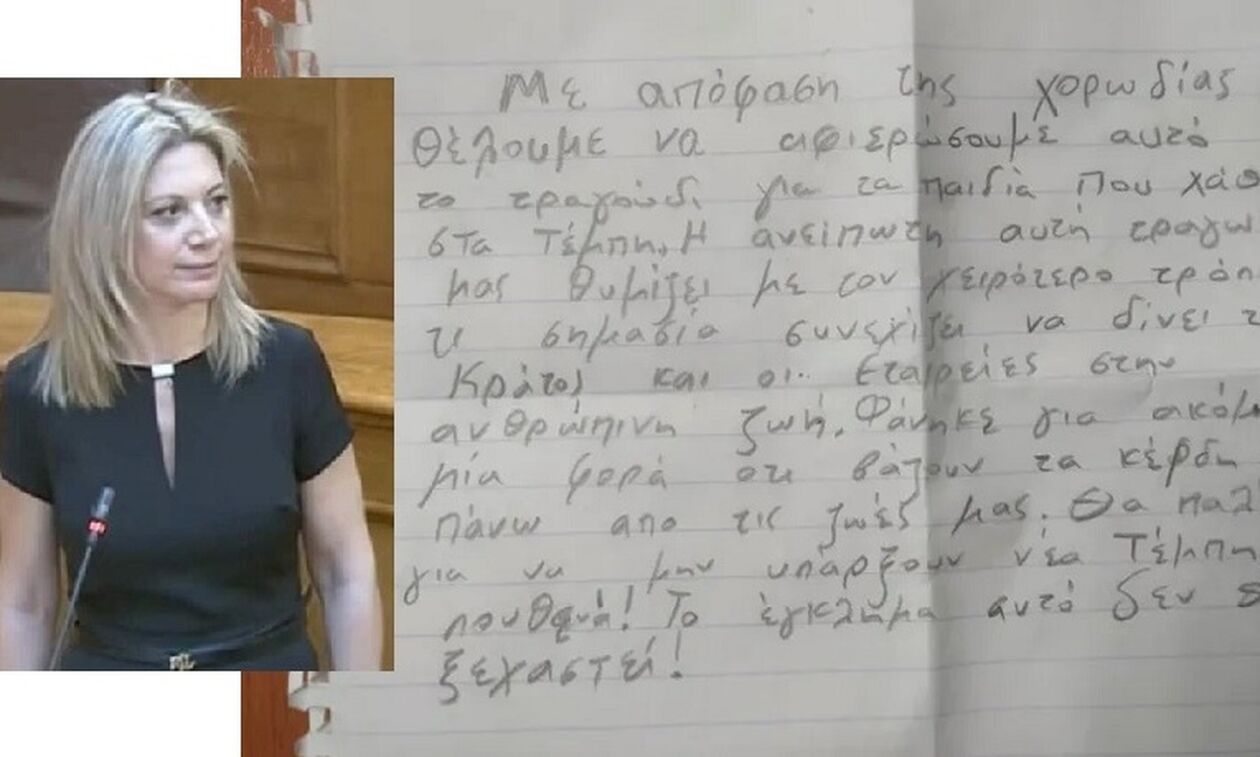 Με απόφαση της χορωδίας
θέλουμε να αφιερώσουμε αυτό
το τραγούδι για τα παιδιά που χάθ
στα Τέμπη. Η ανείπωτη αυτή τραγω
μας θυμίζει με τον χειρότερο τρόπ
τι σημασία συνεχίζει να δίνει τ
Κράτος και οι.. εταιρείες στην
ανθρώπινη ζωή. Φάνηκε για ακόμ
μία φορά οτι βάζουν τα κέρδη
πάνω απο τις ζωές μας. Θα παλ
για να μην υπάρξουν νέα Τέμπη
πουθενά! Το έγκλημα αυτό δεν θ
ξεχαστεί!